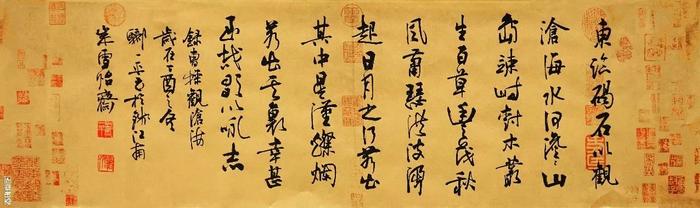 東臨碣石以觀
滄海水何澹々山
島竦峙樹木叢
生百草豐茂秋
風蕭瑟洪波湧
起日月之行若出
其中星漢燦爛
若出其裏幸甚
至哉歌以詠志
錄曹操觀滄海
歲在乙酉之冬
平書於浙江
雪怡齋